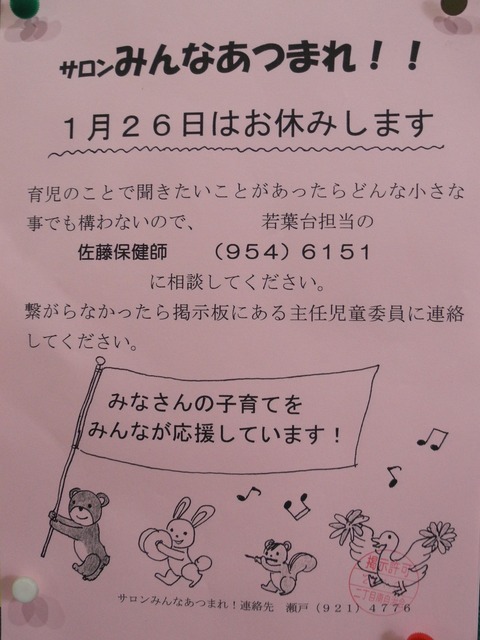 サロンみんなあつまれ！！
１月２６日はお休みします
育児のことで聞きたいことがあったらどんな小さな
事でも構わないので、 若葉台担当の
佐藤保健師 （９５４）６１５１
に相談してください。
繋がらなかったら掲示板にある主任児童委員に連絡
してください。
みなさんの子育てを
みんなが応援しています！
掲示許可
サロンみんなあつまれ！連絡先 瀬戸（９２１）４７７６